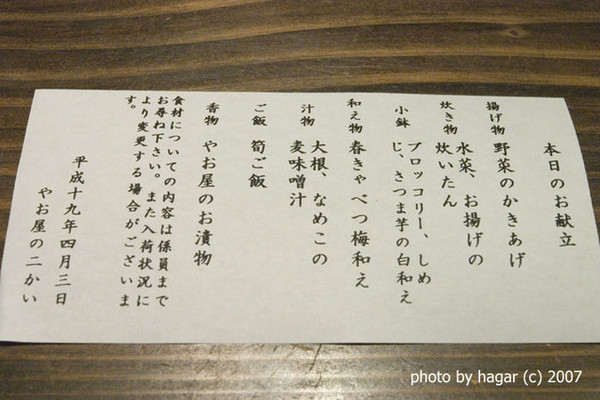 本日のお献立
揚げ物 野菜のかきあげ
炊き物 水菜、お揚げの
炊いたん
小鉢 ブロッコリー、しめ
じ、さつま芋の白和え
和え物 春きゃべつ梅和え
汁物 大根、なめこの
麦味噌汁
ご飯 筍ご飯
香物 やお屋のお漬物
食材についての内容は係員まで
お尋ね下さい。また入荷状況に
より変更する場合がございま
す。
平成十九年四月三日
やお屋の二かい
photo by hagar (c) 2007